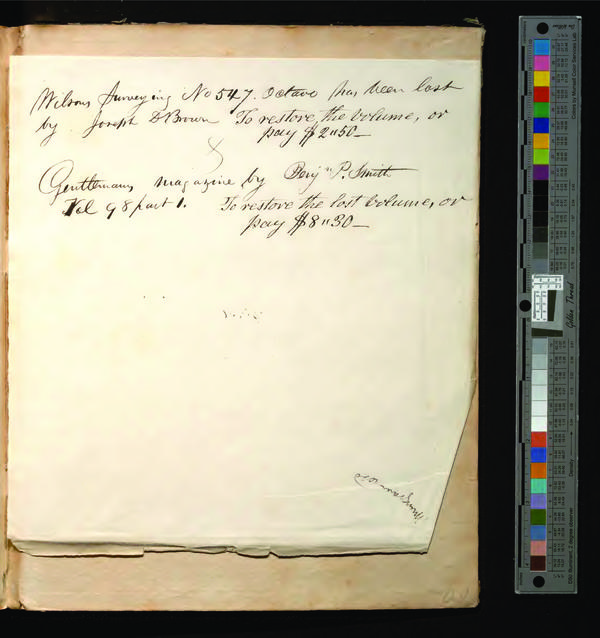 Wilsons Surveying No 547. Octavo has been lost
by Joseph D Brown To restore the volume, or
pay $2"50—
Gentlemans magazine by Benjn P. Smith
Vol 98 part 1. To restore the lost volume, or
pay $8"30—
Golden Thread